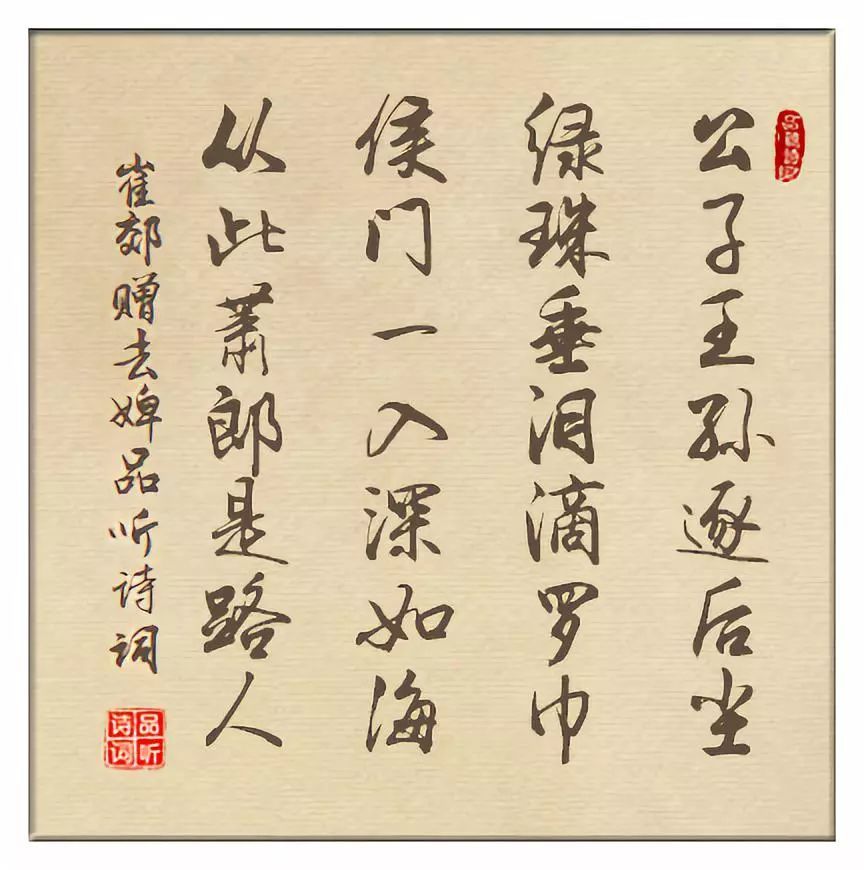 公子王孙逐后尘
绿珠垂泪滴罗巾
侯门一入深如海
从此萧郎是路人
崔郊赠去婢品听诗词
品听
诗词